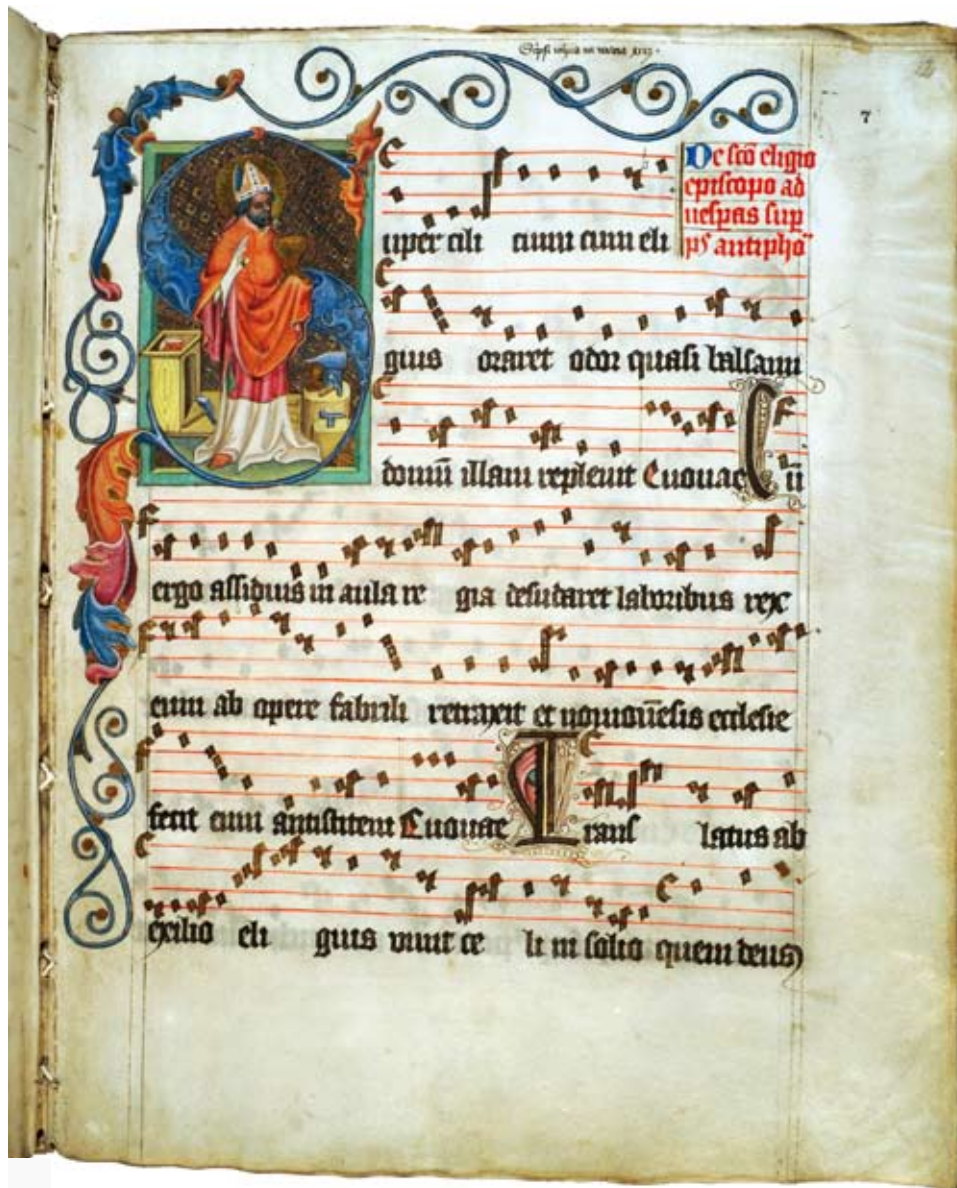 7
De sco eligio
episcopo ad
uespas sup
ps antipho
Super cili cium cum eli
gius oraret odor quasi balsami
domū illam repleuit Euouae Cū
ergo assiduis in aula re gia desudaret laboribus rex
eum ab opere fabrili retraxit et nouiomēsis ecclesie
fecit eum antistitem Euouae Trans latus ab
exilio eli gius viuit ce li in solio quem deus